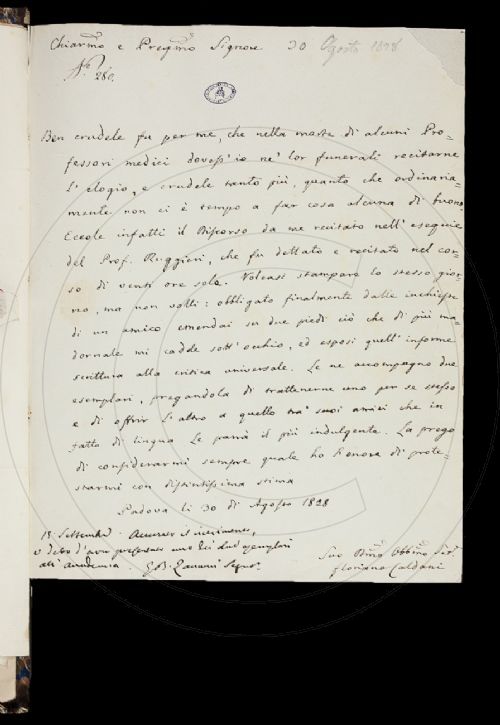 Chiarmo e Pregmo Signore 30 Agosto 1828
N.º 280.
Ben crudele fu per me, che nella morte di alcuni Pro-
fessori medici dovess'io ne' lor funerali recitarne
l'elogio, e crudele tanto più, quanto che ordinaria-
mente non ci è tempo a far cosa alcuna di buono
Eccole infatti il Discorso da me recitato nell'esequie
del Prof. Ruggieri, che fu dettato e recitato nel cor-
so di venti ore sole. Voleasi stampare lo stesso gior-
no, ma non volli: obbligato finalmente dalle inchieste
di un amico emendai su due piedi ciò che di più ma-
dornale mi cadde sott'occhio, ed esposi quell'informe
scrittura alla critica universale. Le ne accompagno due
esemplari, pregandola di trattenerne uno per se stesso
e di offrir l'altro a quello tra' suoi amici che in
fatto di lingua Le parrà il più indulgente. La prego
di considerarmi sempre quale ho l'onore di prote-
starmi con distintissima stima
Padova li 30 di Agosto 1828
18. Settembre
e debo d'aver presentato uno dei due esemplari
all'Accademia. G.B. Zannoni Segro.
Suo Dmo Obbmo Ser
Floriano Caldani